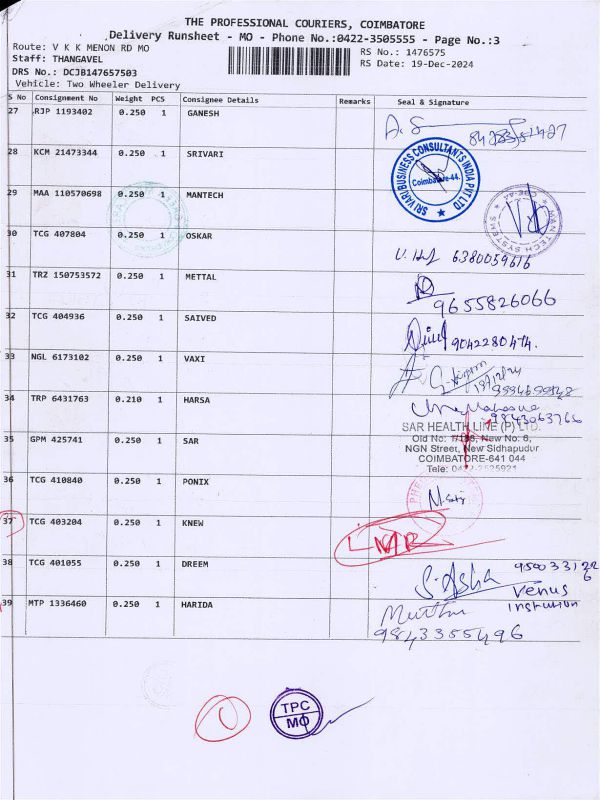 THE PROFESSIONAL COURIERS, COIMBATORE
Delivery Runsheet - MO - Phone No.:0422-3505555 - Page No.:3
Route: V K K MENON RD MO
RS No.: 1476575
Staff: THANGAVEL
RS Date: 19-Dec-2024
DRS No.: DCJB147657503
Vehicle: Two Wheeler Delivery
S No Consignment No Weight PCS Consignee Details Remarks Seal & Signature
27 RJP 1193402 0.250 1 GANESH
28 KCM 21473344 0.250 1 SRIVARI
SRI VARI BUSINESS CONSULTANTS INDIA PVT LTD
Coimbatore-44.
29 MAA 110570698 0.250 1 MANTECH
MAN TECH SYSTEMS
30 TCG 407804 0.250 1 OSKAR 6380059616
31 TRZ 150753572 0.250 1 METTAL 9655826066
32 TCG 404936 0.250 1 SAIVED 9042280474.
33 NGL 6173102 0.250 1 VAXI
34 TRP 6431763 0.210 1 HARSA 9843063766
35 GPM 425741 0.250 1 SAR
SAR HEALTH LINE (P) LTD.
Old No: New No: 6,
NGN Street, New Sidhapudur
COIMBATORE-641 044
36 TCG 410840 0.250 1 PONIX
37 TCG 403204 0.250 1 KNEW
38 TCG 401055 0.250 1 DREEM S. Asha Venus
39 MTP 1336460 0.250 1 HARIDA
9843355496
TPC
MO